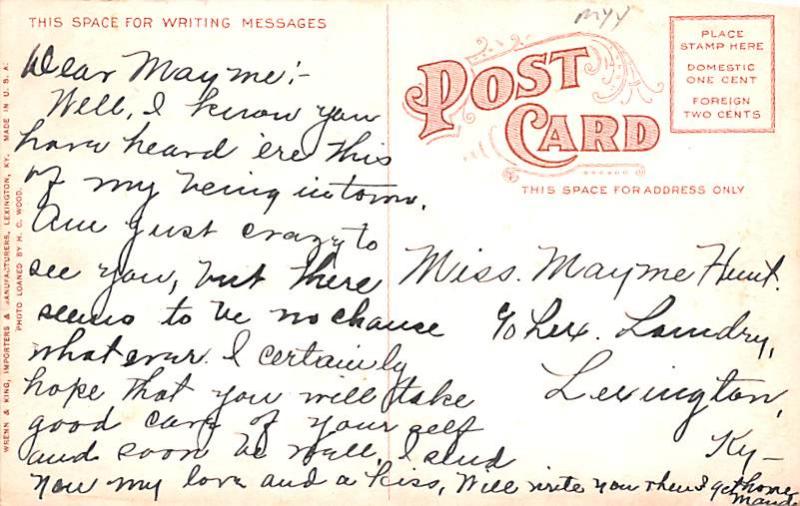 THIS SPACE FOR WRITING MESSAGES
Dear Mayme:-
Well, I know you
have heard ere this
of my being in town.
Am just crazy to
see you, but there
seems to be no chance
whatever. I certainly
hope that you will take
good care of your self
and soon be well, I send
you my love and a kiss, Will write you when I get home
Maude
WRENN & KING, IMPORTERS & MANUFACTURERS, LEXINGTON, KY. MADE IN U.S.A.
PHOTO LOANED BY H. C. WOOD.
myy
POST
CARD
THIS SPACE FOR ADDRESS ONLY
PLACE
STAMP HERE
DOMESTIC
ONE CENT
FOREIGN
TWO CENTS
Miss. Mayme Hunt.
c/o Lex. Laundry,
Lexington,
Ky-